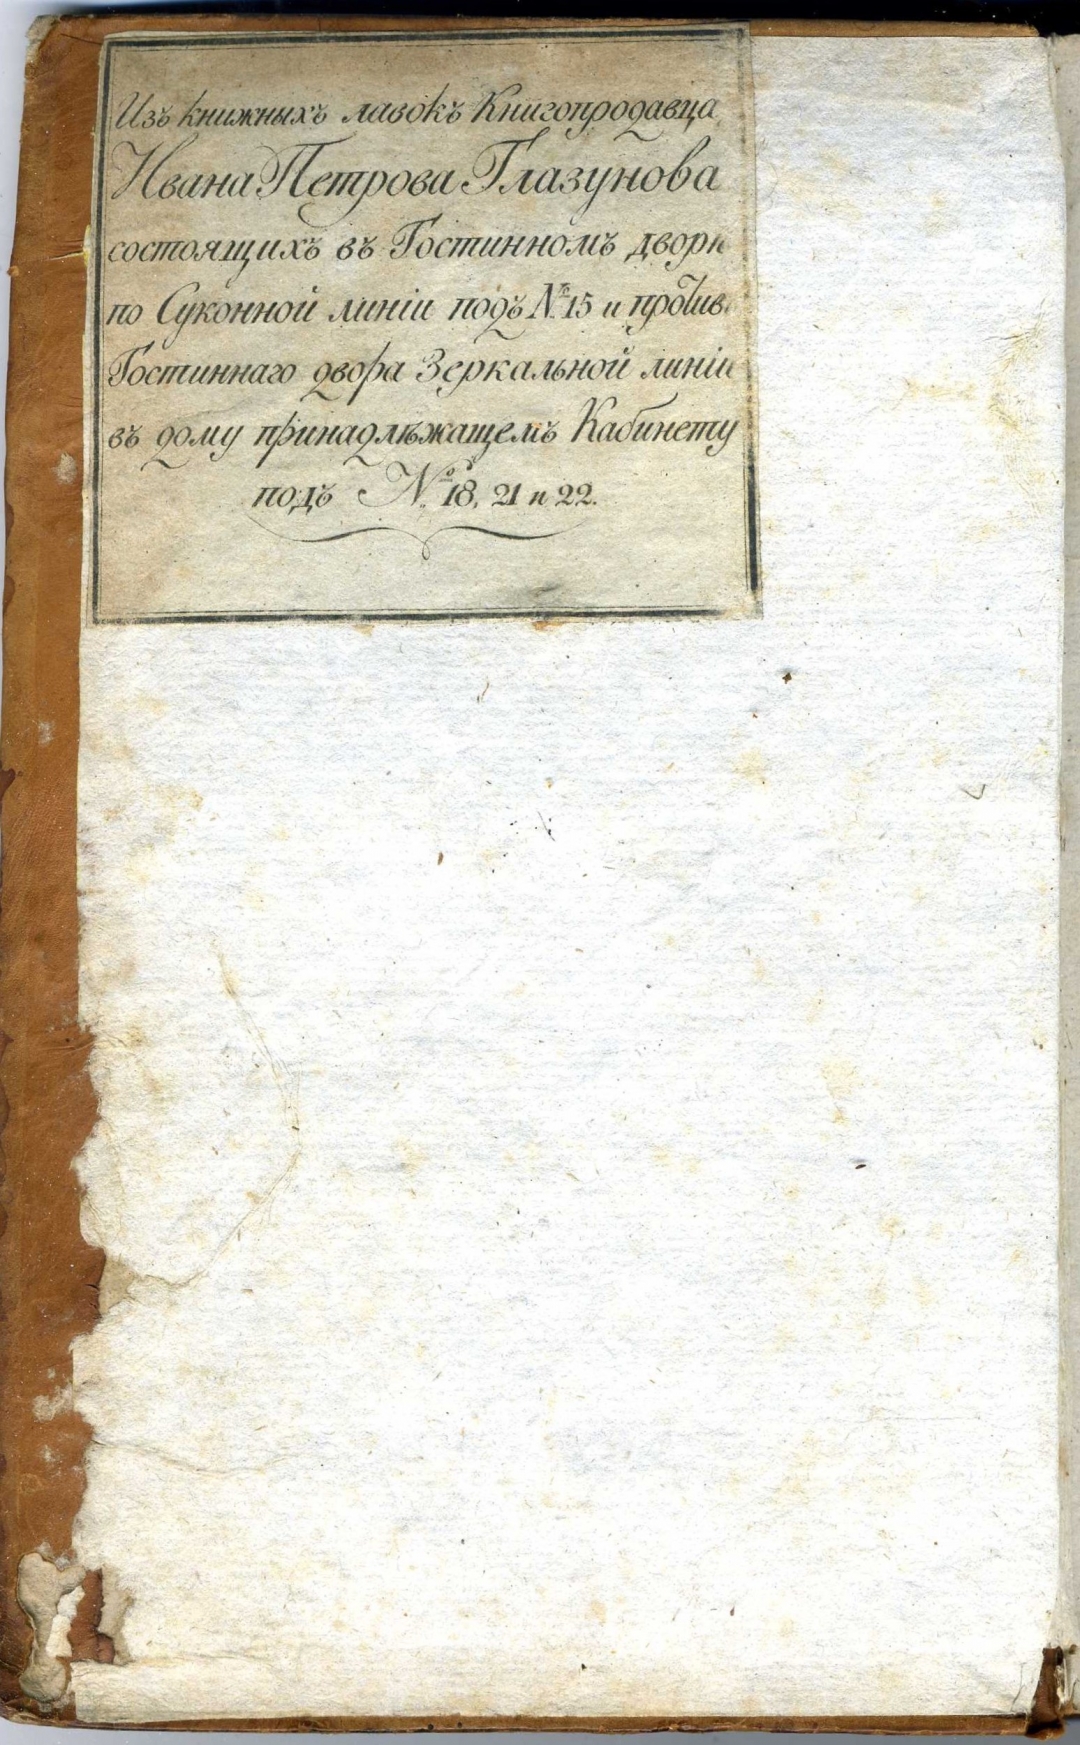 Изъ книжныхъ лавокъ Книгопродавца
Ивана Петрова Глазунова
состоящихъ въ Гостинномъ дворѣ
по Суконной линіи подъ №15 и против
Гостиннаго двора Зеркальной линіи
въ дому принадлѣжащемъ Кабинету
подъ №18, 21 и 22.